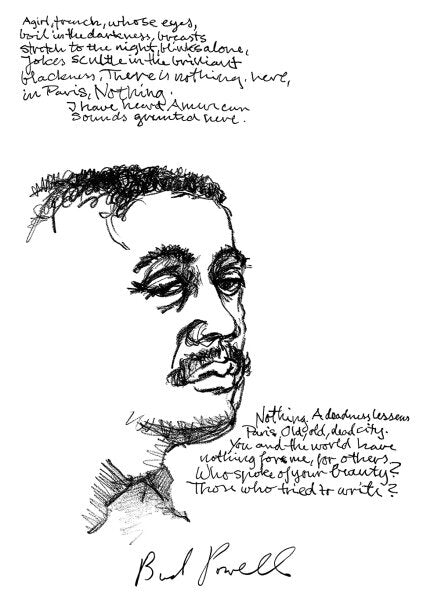 A girl, french, whose eyes,
boil in the darkness, breasts
stretch to the night, blinks alone,
Jokes scuttle in the brilliant
blackness, There is nothing. here,
in Paris, Nothing.
I have heard American
Sounds grunted here.
Nothing. A deadness lessens
Paris Old, old, dead city.
You and the world have
nothing for me, for others
Who spoke of your beauty?
Those who tried to write?
Bud Powell